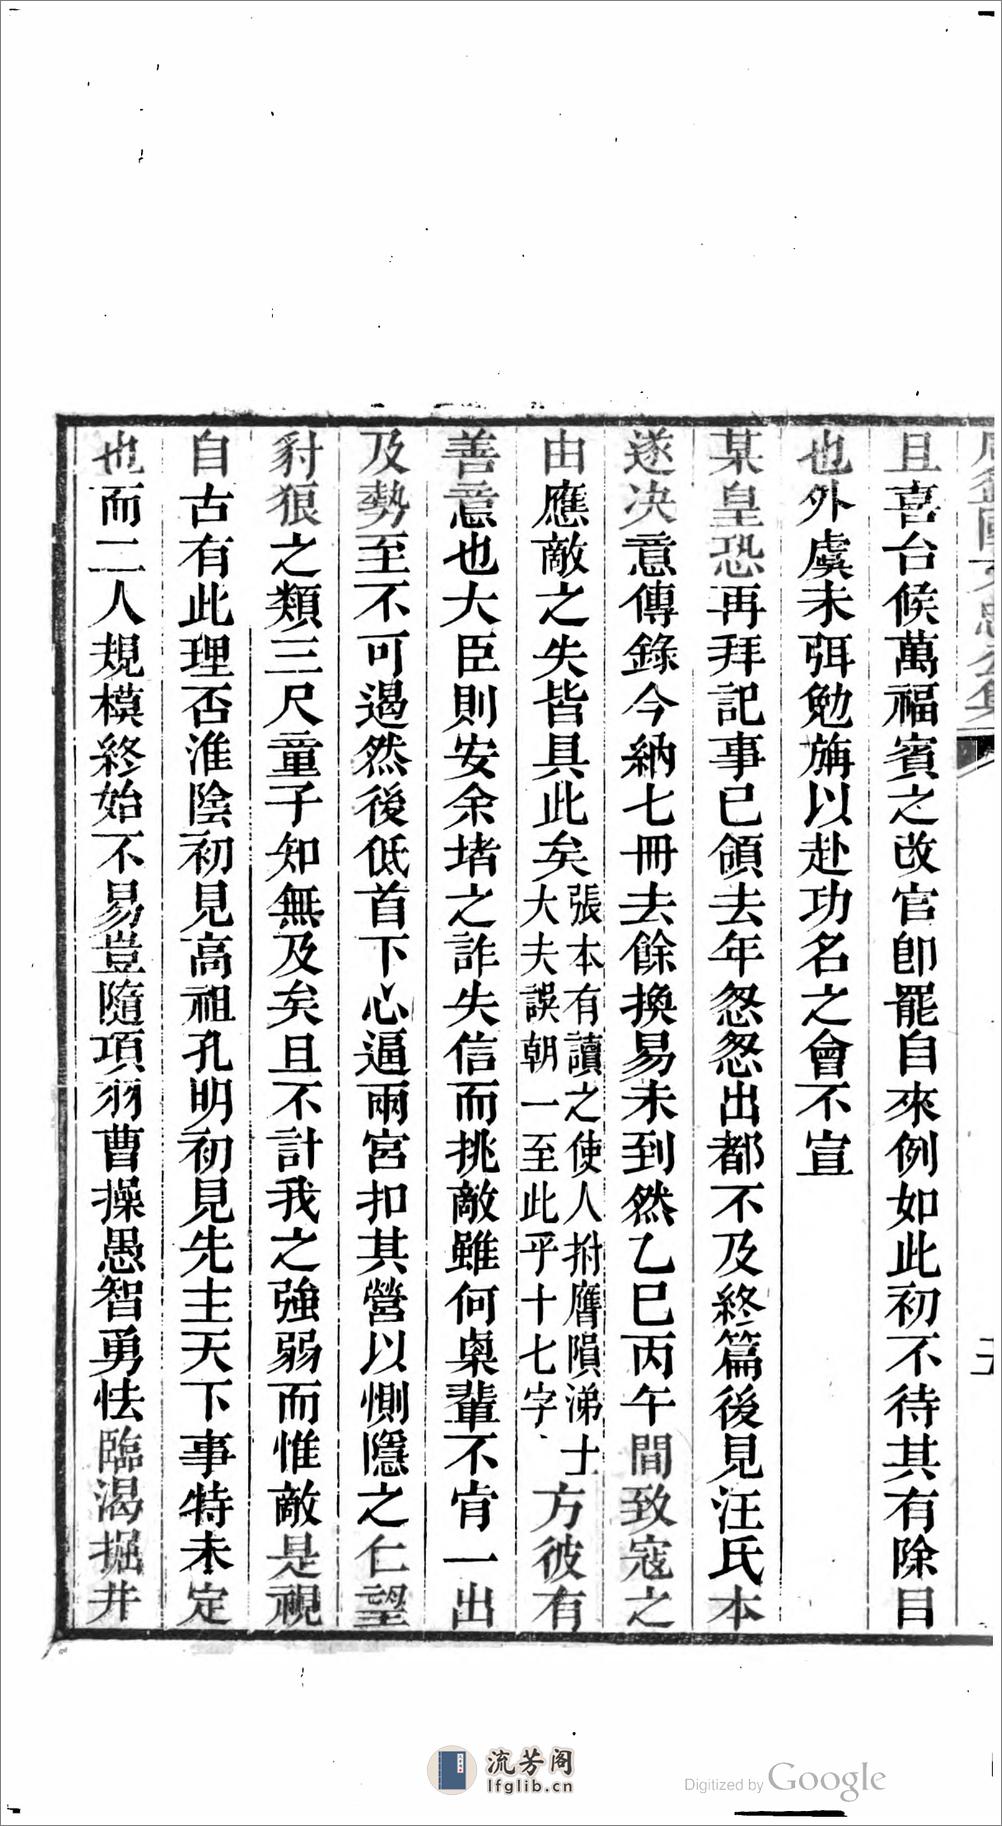 且喜台候萬福賓之改官卽罷自來例如此初不待其有除目
也外虞未弭勉旃以赴功名之會不宣
某皇恐再拜記事已領去年怱怱出都不及終篇後見汪氏本
遂決意傳錄今納七冊去餘換易未到然乙巳丙午間致寇之
由應敵之失皆具此矣張本有讀之使人拊膺隕涕士大夫誤朝一至此乎十七字方彼有
善意也大臣則安余堵之詐失信而挑敵雖何㮚輩不肯一出
及勢至不可遏然後低首下心逼兩宮扣其營以惻隱之仁望
豺狼之類三尺童子知無及矣且不計我之強弱而惟敵是視
自古有此理否淮陰初見高祖孔明初見先主天下事特未定
也而二人規模終始不易豈隨項羽曹操愚智勇怯臨渴掘井
流芳阁
lfglib.cn
Digitized by Google